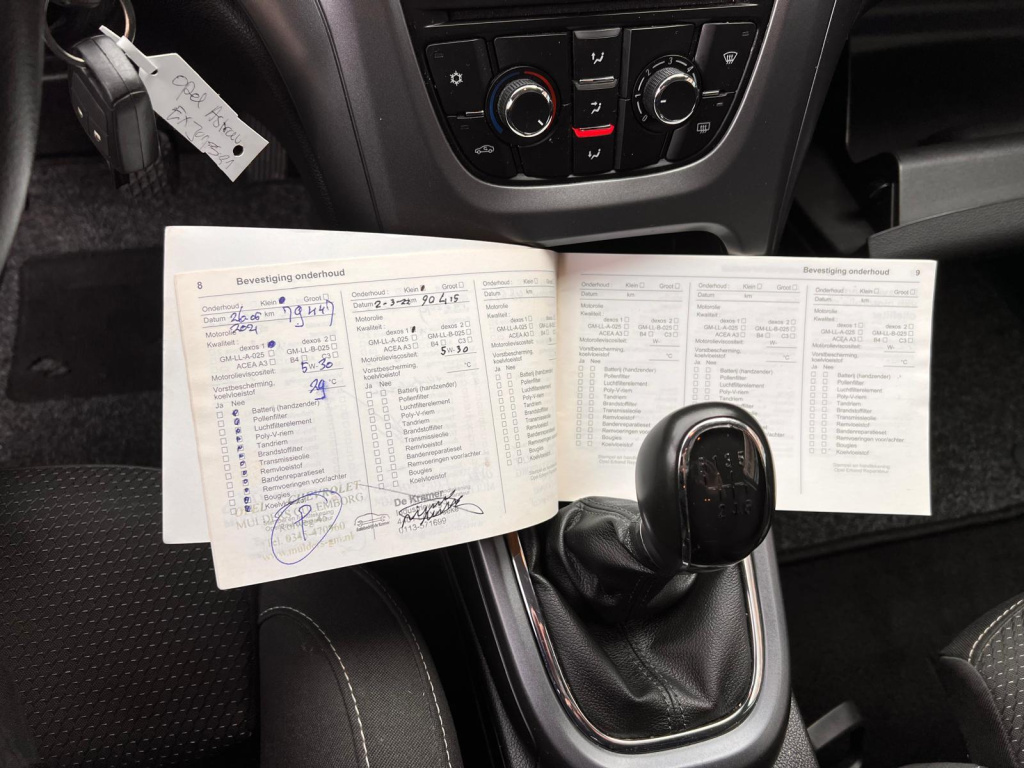 Opel Astra
8 Bevestiging onderhoud
Onderhoud : Klein Groot
Datum 26.05 km 79447
2021
Motorolie
Kwaliteit :
dexos 1 dexos 2
GM-LL-A-025 GM-LL-B-025
ACEA A3 B4 C3
Motorolieviscositeit: 5 W- 30
Vorstbescherming,
koelvloeistof 29 °C
Ja Nee
Batterij (handzender)
Pollenfilter
Luchtfilterelement
Poly-V-riem
Tandriem
Brandstoffilter
Transmissieolie
Remvloeistof
Bandenreparatieset
Remvoeringen voor/achter
Bougies
Koelvloeistof
Onderhoud : Klein Groot
Datum 2-3-22 km 90415
Motorolie
Kwaliteit :
dexos 1 dexos 2
GM-LL-A-025 GM-LL-B-025
ACEA A3 B4 C3
Motorolieviscositeit: 5 W- 30
Vorstbescherming,
koelvloeistof °C
Ja Nee
Batterij (handzender)
Pollenfilter
Luchtfilterelement
Poly-V-riem
Tandriem
Brandstoffilter
Transmissieolie
Remvloeistof
Bandenreparatieset
Remvoeringen voor/achter
Bougies
Koelvloeistof
De Kramer
0113-571699
Onderhoud : Klein Groot
Datum km
Motorolie
Kwaliteit :
dexos 1 dexos 2
GM-LL-A-025 GM-LL-B-025
ACEA A3 B4 C3
Motorolieviscositeit: W-
Vorstbescherming,
koelvloeistof °C
Ja Nee
Batterij (handzender)
Pollenfilter
Luchtfilterelement
Poly-V-riem
Tandriem
Brandstoffilter
Transmissieolie
Remvloeistof
Bandenreparatieset
Remvoeringen voor/achter
Bougies
Koelvloeistof
Bevestiging onderhoud 9
Onderhoud : Klein Groot
Datum km
Motorolie
Kwaliteit :
dexos 1 dexos 2
GM-LL-A-025 GM-LL-B-025
ACEA A3 B4 C3
Motorolieviscositeit: W-
Vorstbescherming,
koelvloeistof °C
Ja Nee
Batterij (handzender)
Pollenfilter
Luchtfilterelement
Poly-V-riem
Tandriem
Brandstoffilter
Transmissieolie
Remvloeistof
Bandenreparatieset
Remvoeringen voor/achter
Bougies
Koelvloeistof
Onderhoud : Klein Groot
Datum km
Motorolie
Kwaliteit :
dexos 1 dexos 2
GM-LL-A-025 GM-LL-B-025
ACEA A3 B4 C3
Motorolieviscositeit: W-
Vorstbescherming,
koelvloeistof °C
Ja Nee
Batterij (handzender)
Pollenfilter
Luchtfilterelement
Poly-V-riem
Tandriem
Brandstoffilter
Onderhoud : Klein Groot
Datum km
Motorolie
Kwaliteit :
dexos 1 dexos 2
GM-LL-A-025 GM-LL-B-025
ACEA A3 B4 C3
Motorolieviscositeit: W-
Vorstbescherming,
koelvloeistof °C
Ja Nee
Batterij (handzender)
Pollenfilter
Luchtfilterelement
Poly-V-riem
Tandriem
Brandstoffilter
Transmissieolie
Remvloeistof
Bandenreparatieset
Remvoeringen voor/achter
Bougies
Koelvloeistof